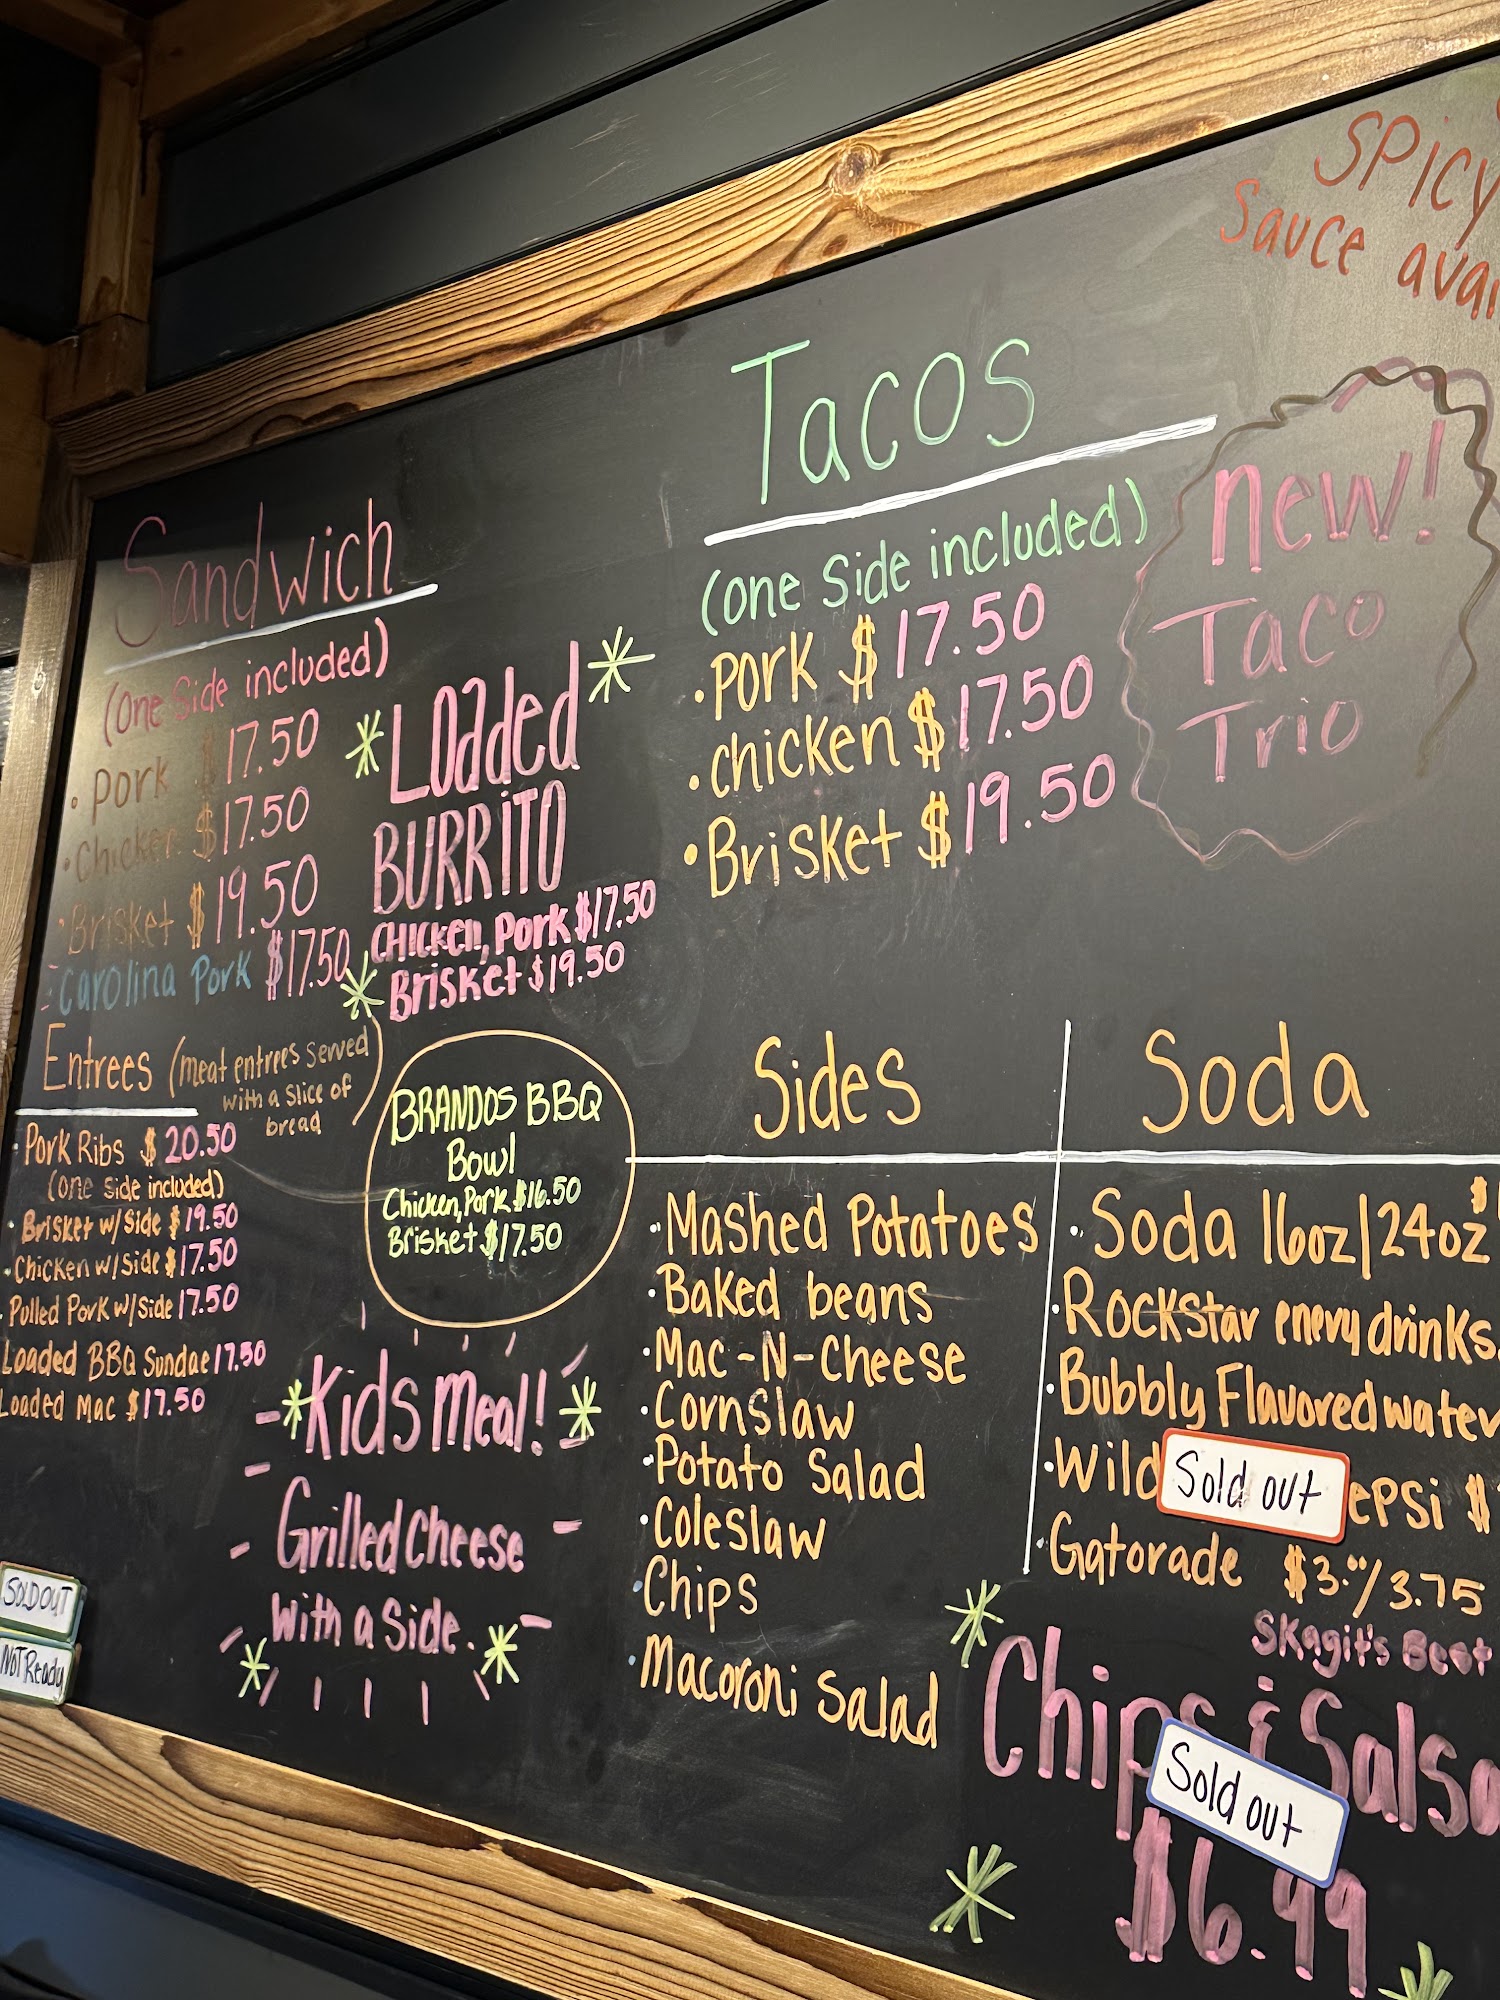 Spicy
Sauce
Tacos
(one Side included)
• Pork $17.50
• chicken $17.50
• Brisket $19.50
new!
Taco
Trio
Sandwich
(one Side included)
• Pork $17.50
• Chicken $17.50
• Brisket $19.50
Carolina Pork $17.50
Loaded
BURRITO
CHICKEN, Pork $17.50
Brisket $19.50
Entrees (meat entrees served
with a slice of
bread
• Pork Ribs $20.50
(one side included)
• Brisket w/Side $19.50
• Chicken w/Side $17.50
• Pulled Pork w/side 17.50
Loaded BBQ Sundae 17.50
Loaded Mac $17.50
BRANDOS BBQ
Bowl
Chicken, Pork $16.50
Brisket $17.50
Kids meal!
Grilled cheese
with a Side.
Sides
• Mashed Potatoes
• Baked beans
• Mac-N-Cheese
• Cornslaw
• Potato Salad
• Coleslaw
• Chips
• Macoroni Salad
Soda
• Soda 16oz/24oz $
• Rockstar enery drinks
• Bubbly Flavored water
• Wild
Sold out
epsi $
• Gatorade $3.00/3.75
Skagit's Best
Chips & Salsa
Sold out
$6.99
SOLD OUT
NOT Ready